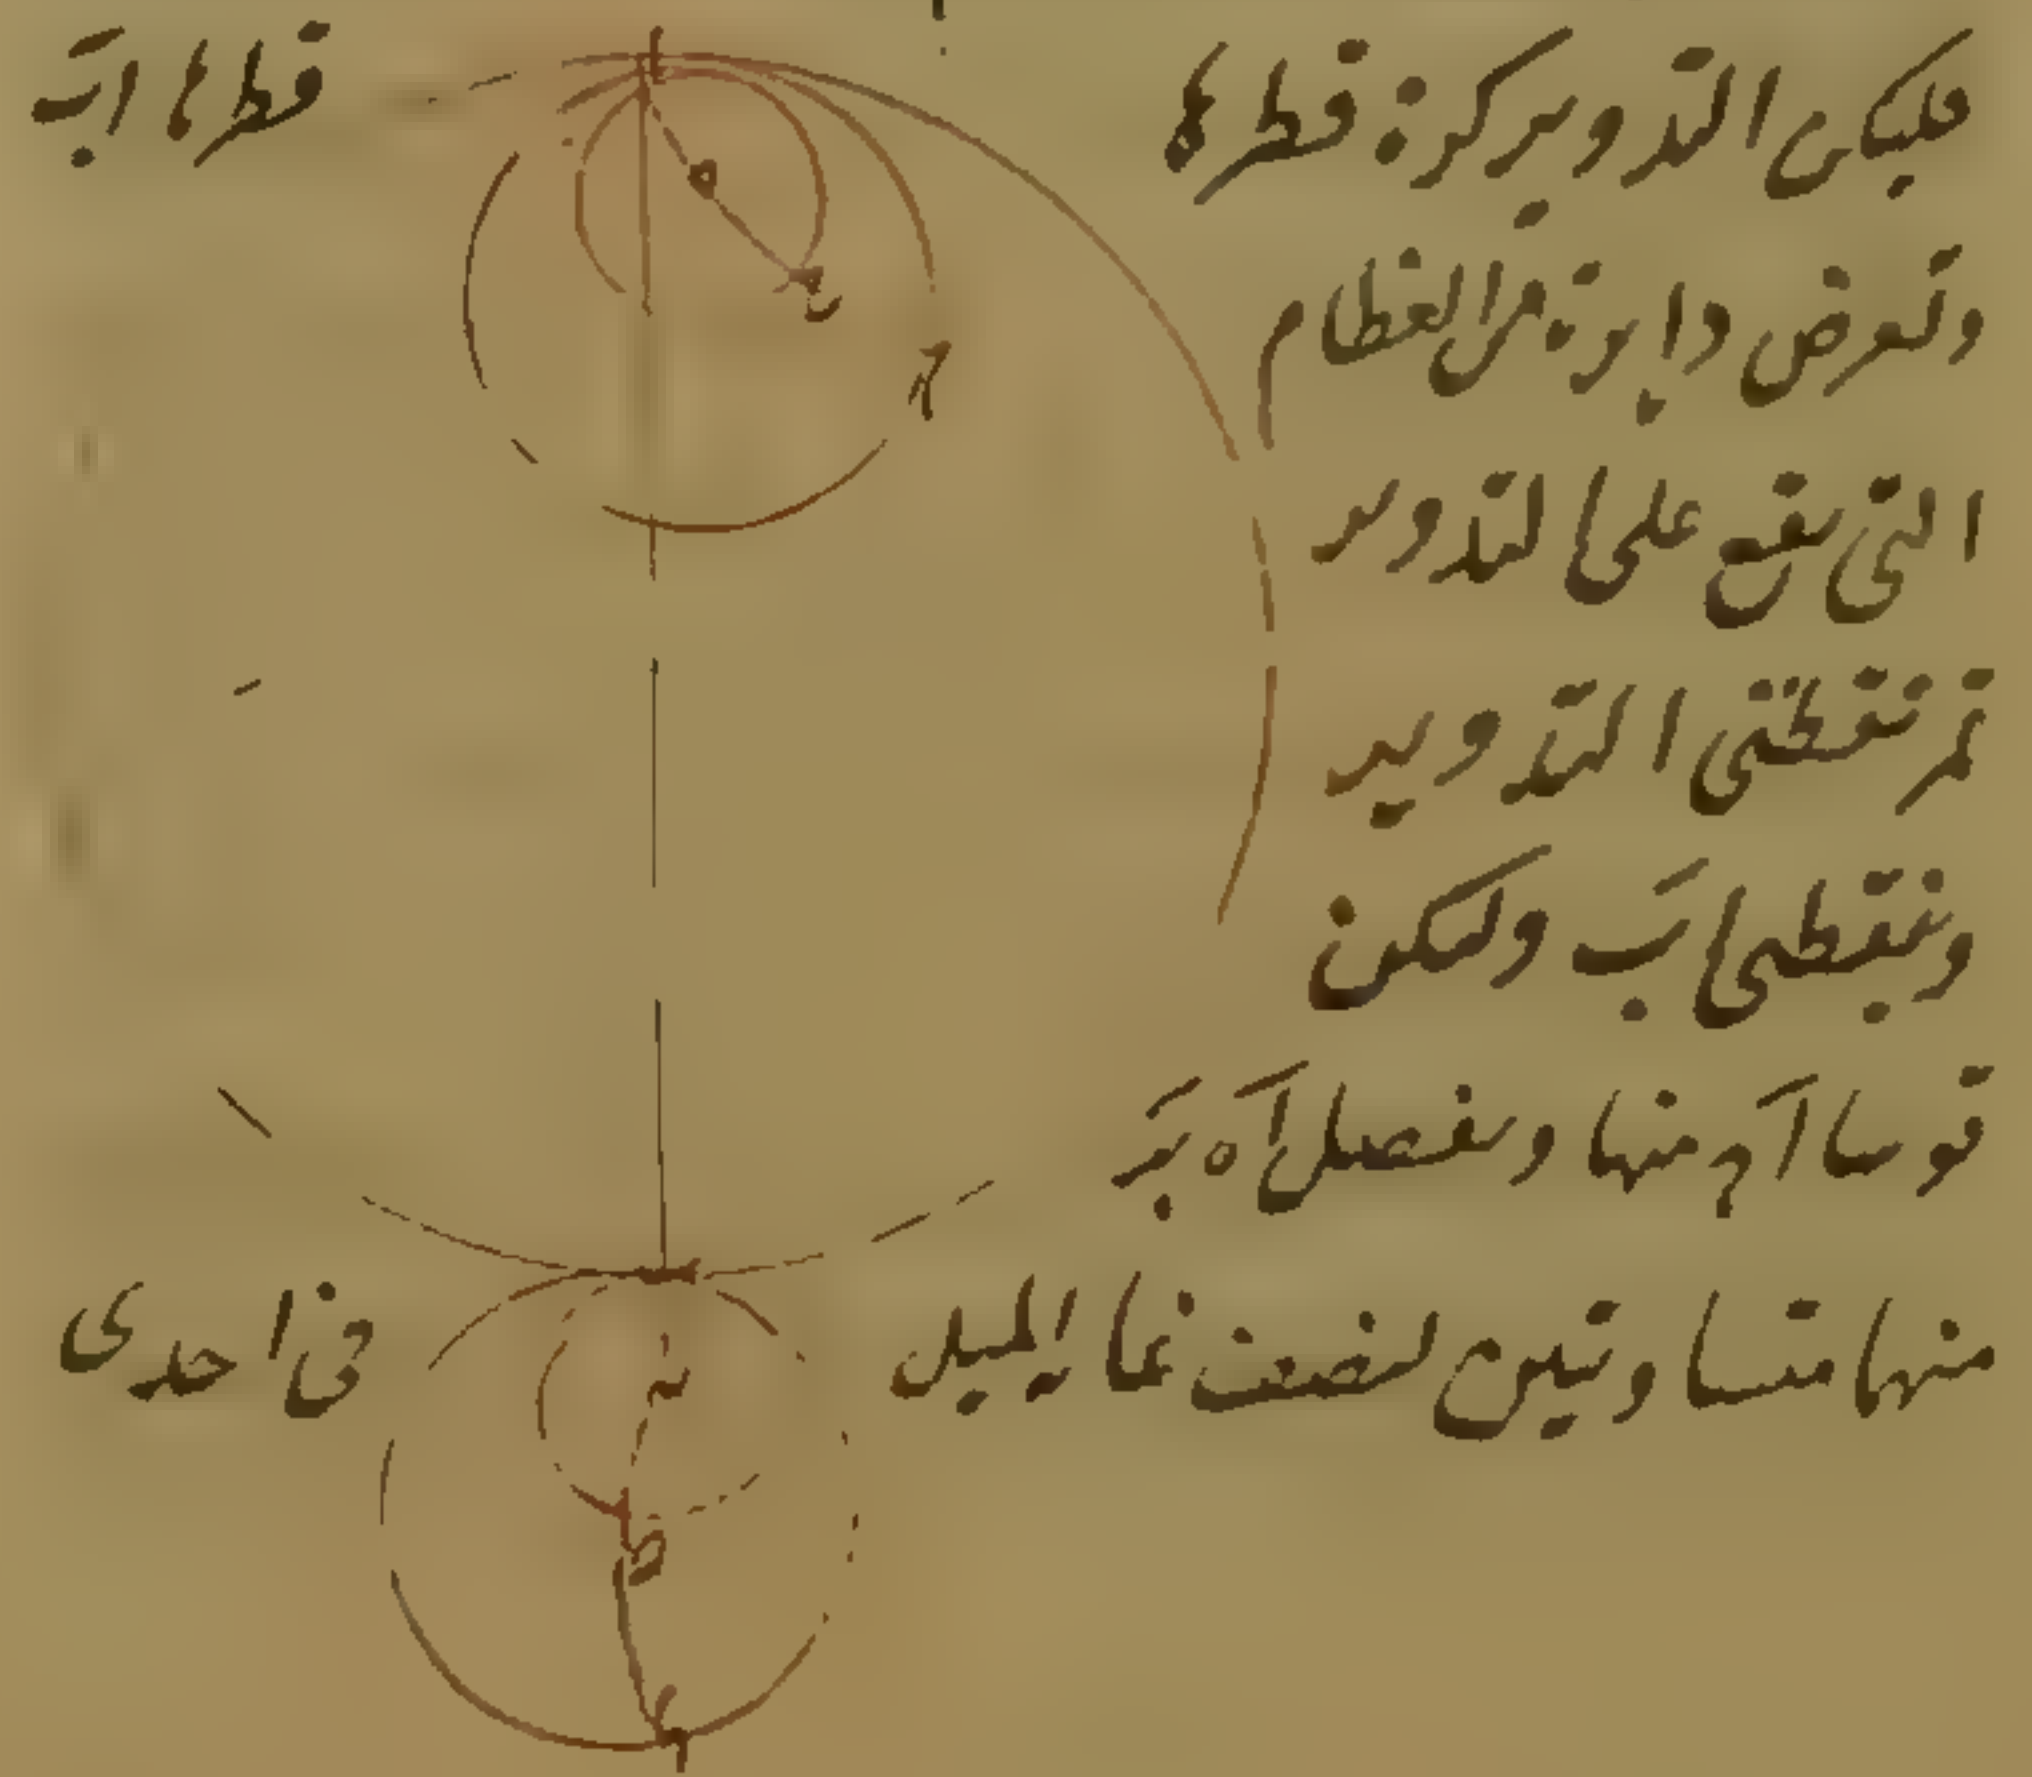 فليكن التدوير كرة قطرها قطرها اب
ونعرض دايرة من العظام
التي تقع على التدوير
تمر بنقطتي التدوير
وبنقطتي اب وليكن
قوسا آح منها ونفصل آه بر
منها متساويتين لنصف غاية الميل في احدى
ه
ب
ح
ر
ط